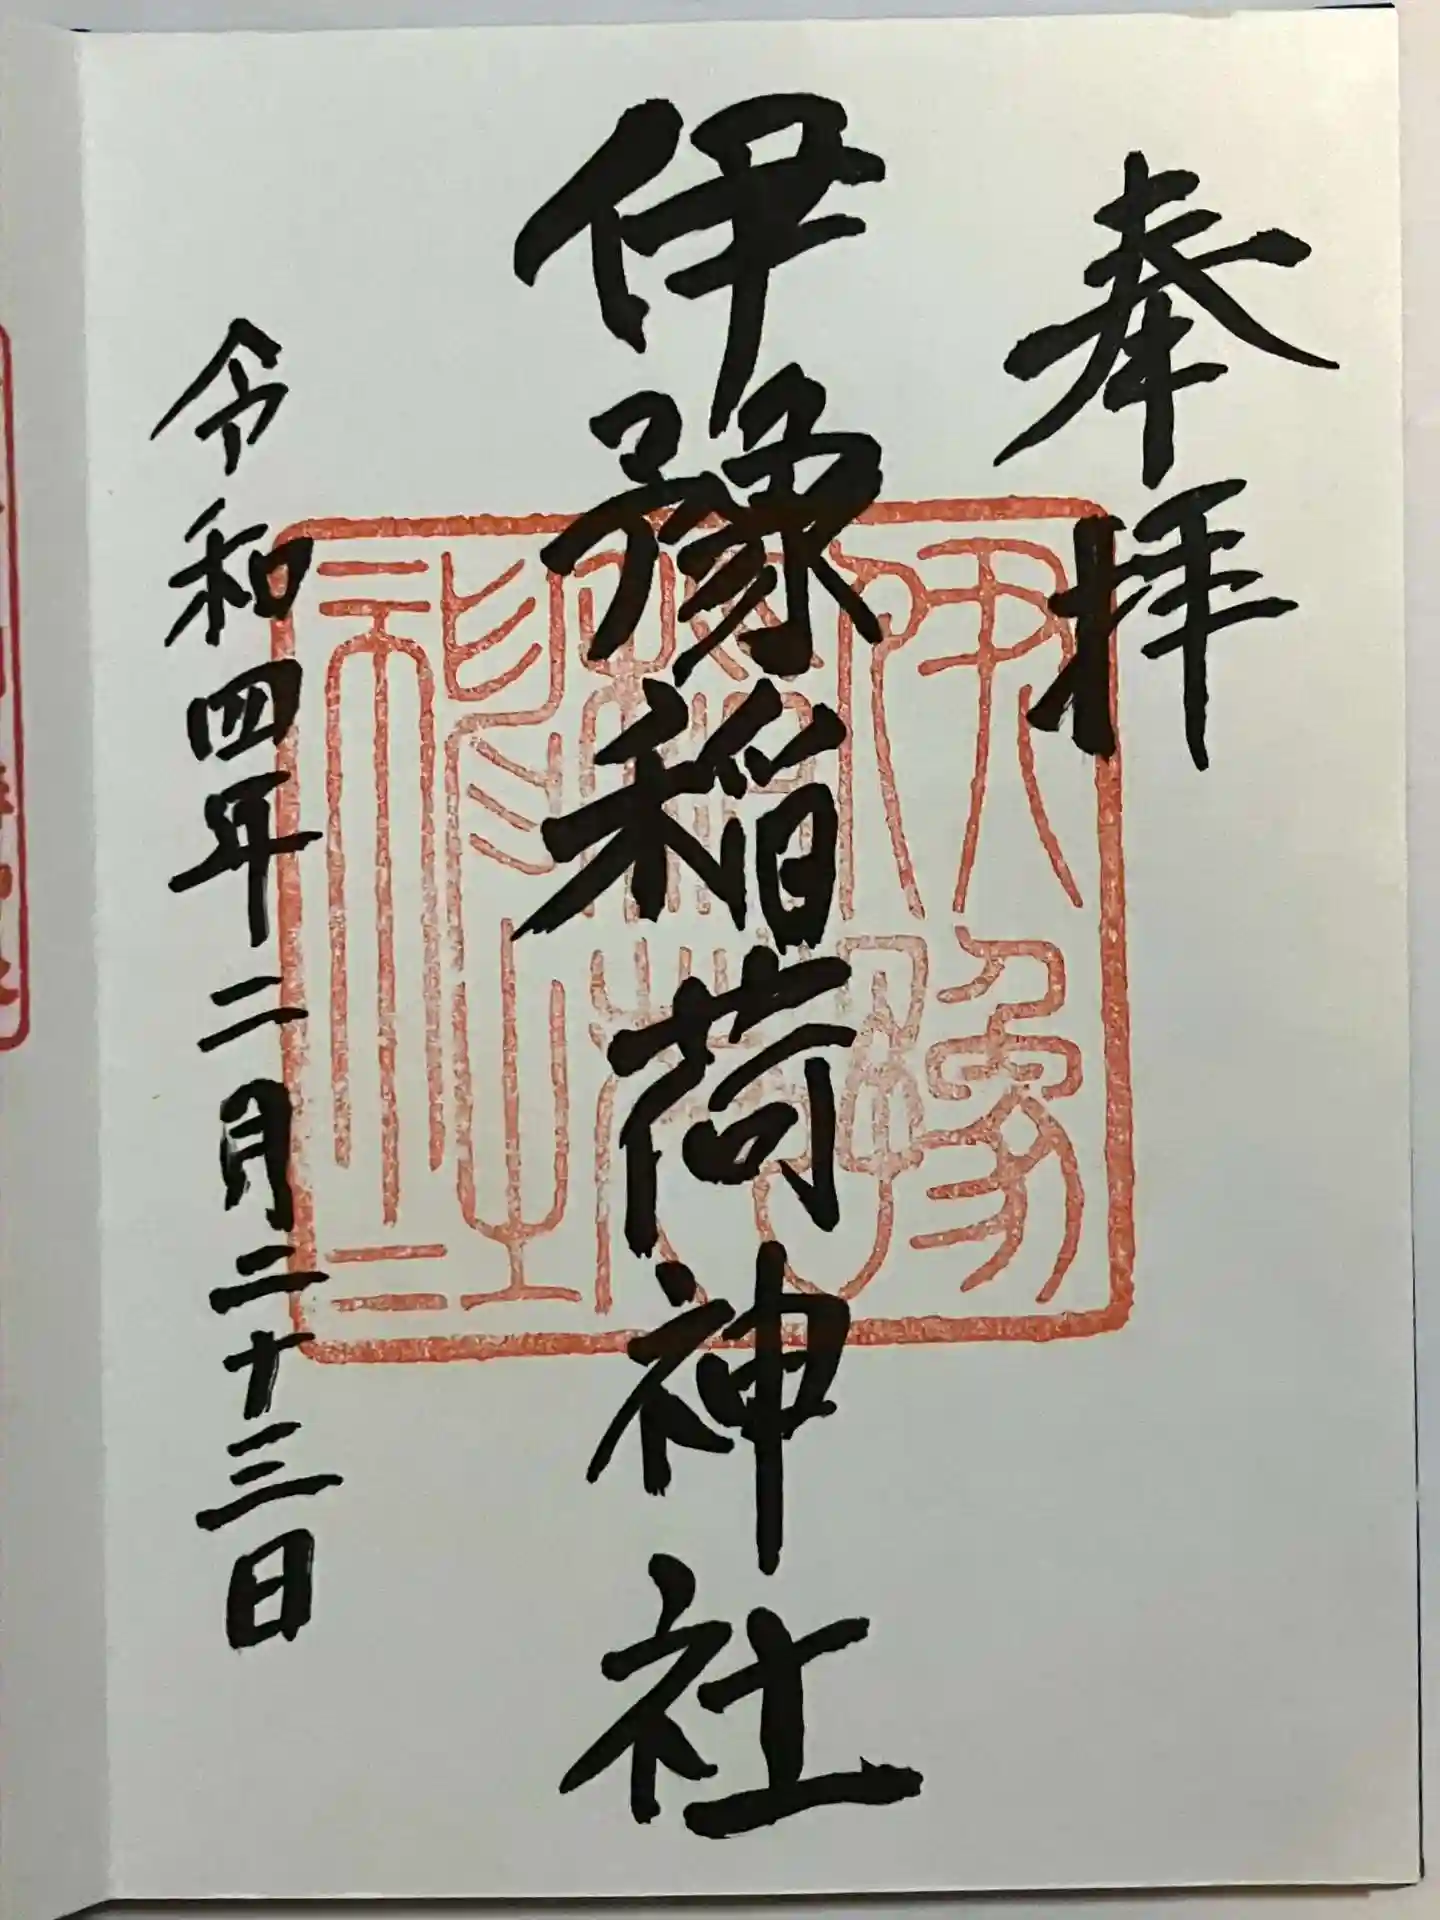 奉拝
伊豫稲荷神社
令和四年二月二十三日
伊豫
稲荷
神社